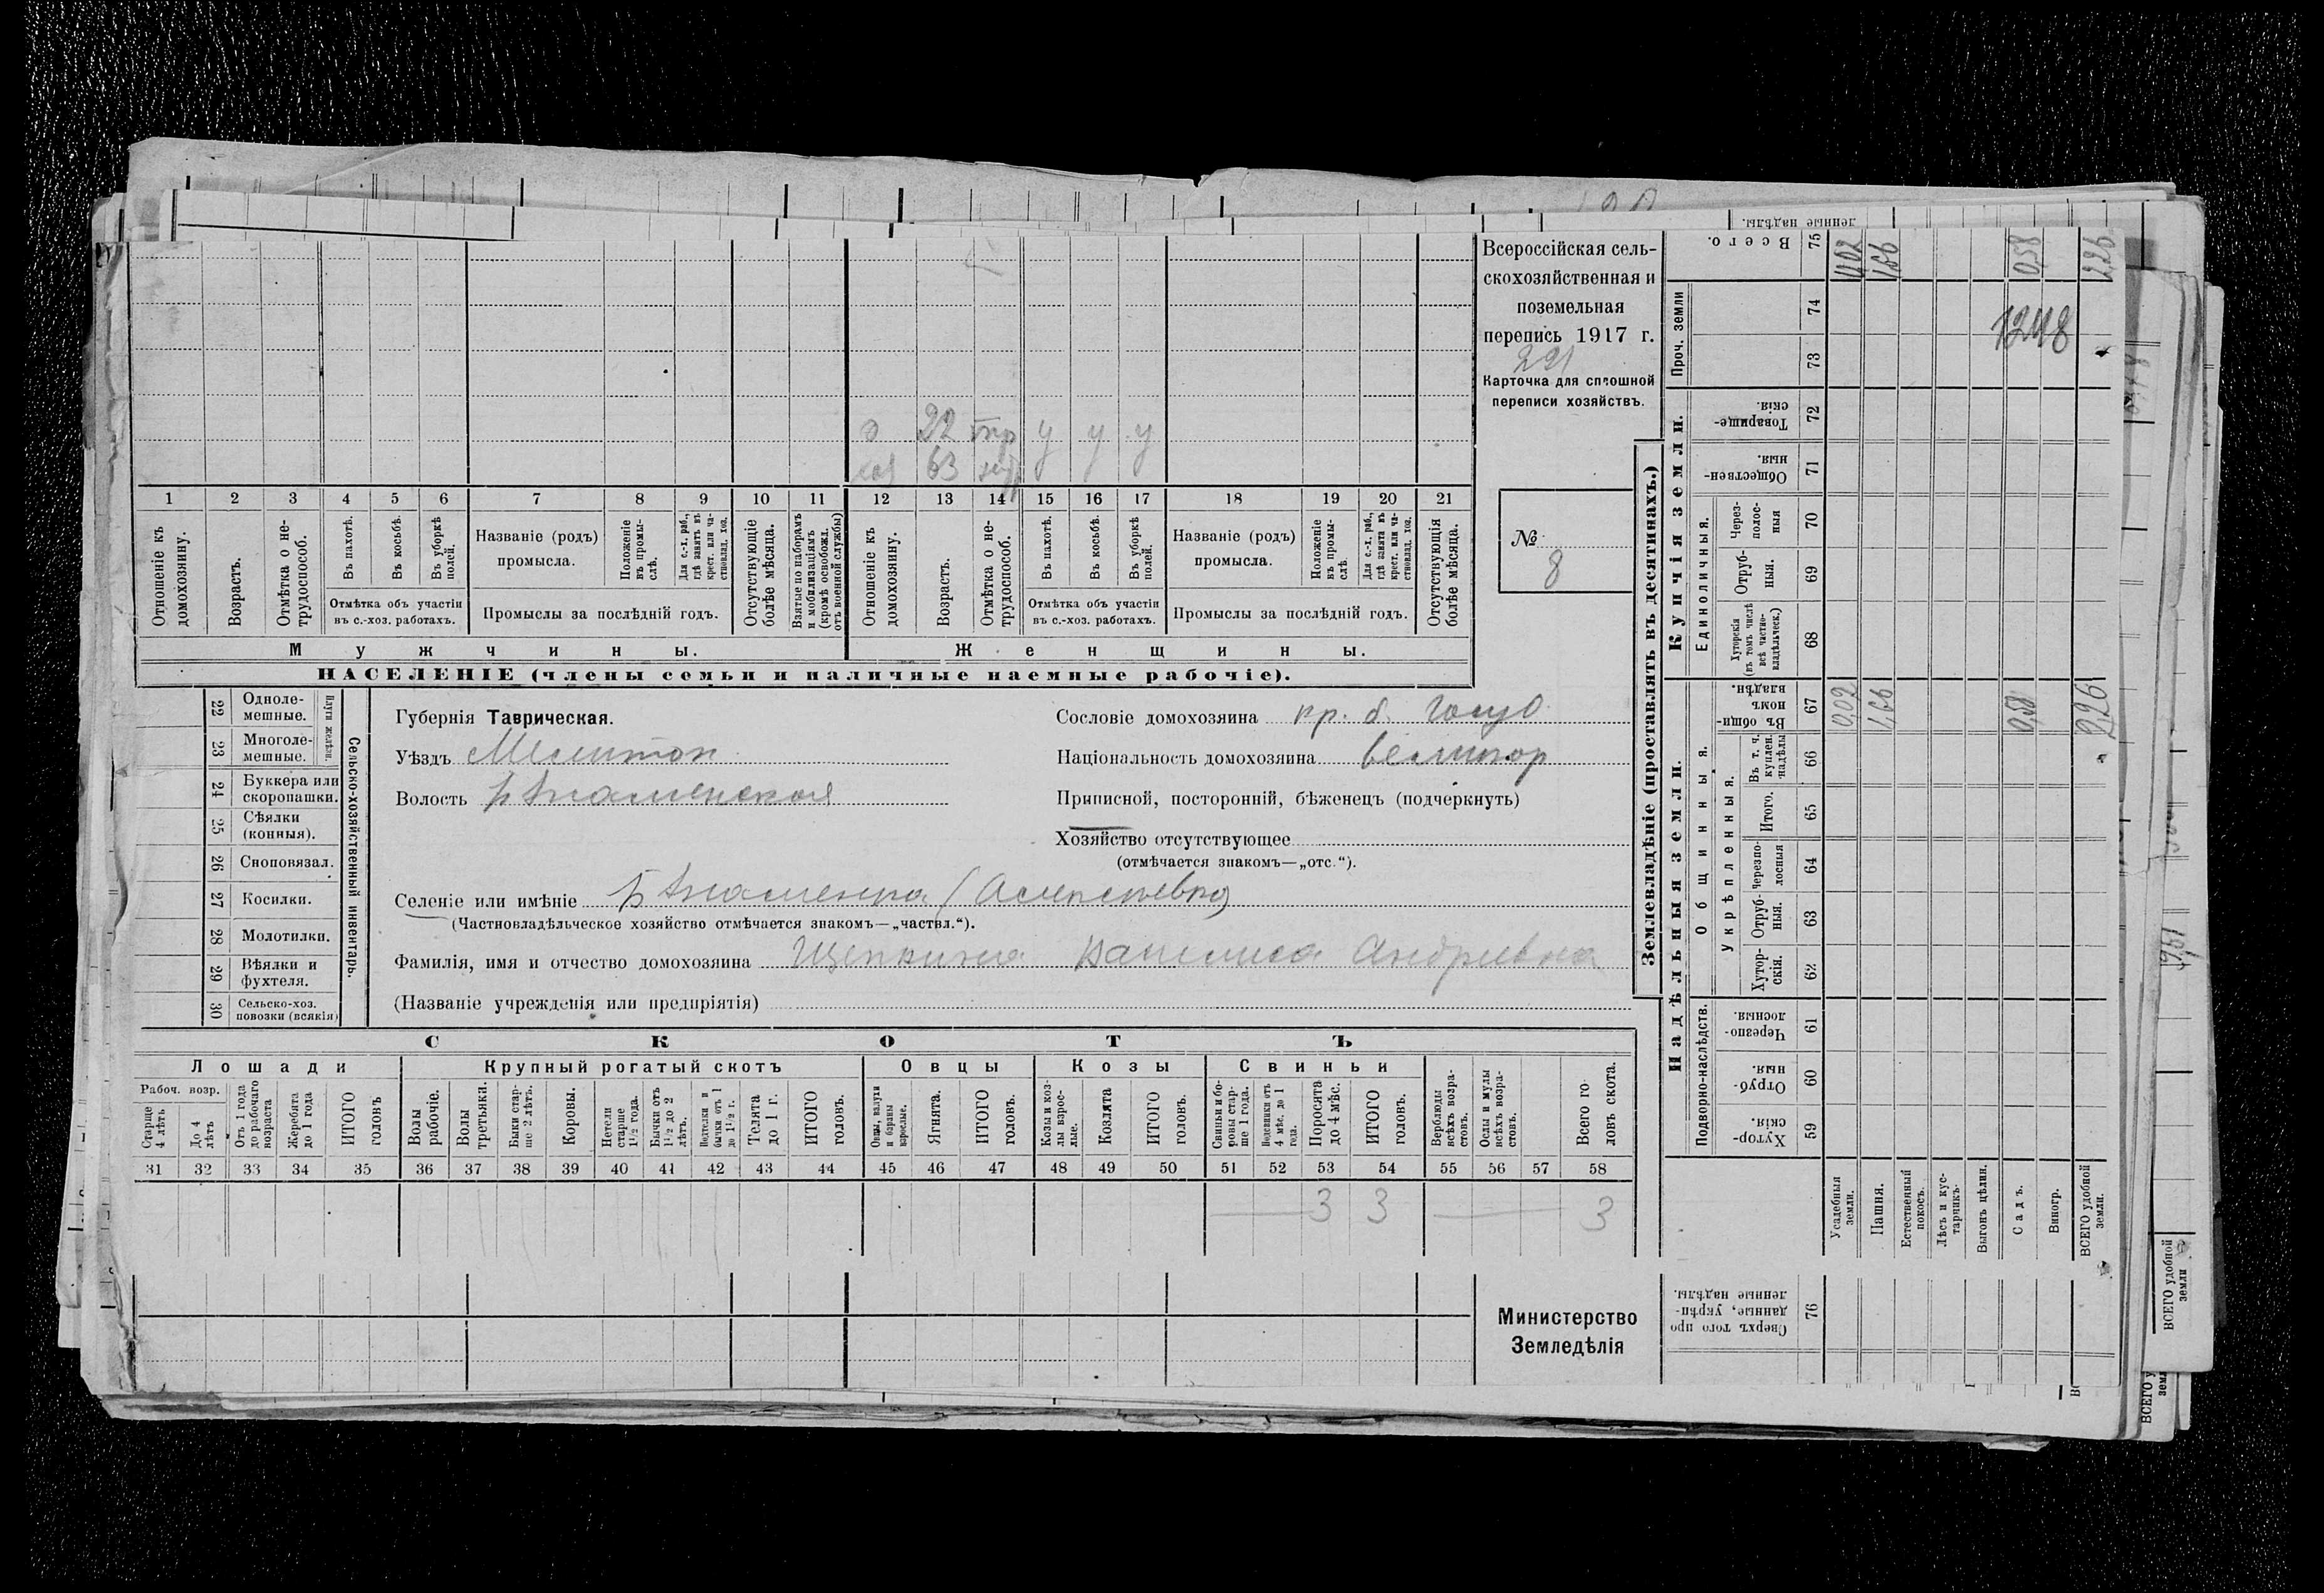 Всероссійская сель-
скохозяйственная и
поземельная
перепись 1917 г.
221
Карточка для сплошной
переписи хозяйствъ.
№
8
22 тр у у у
хоз 63
1 2 3 4 5 6 7 8 9 10 11 12 13 14 15 16 17 18 19 20 21
Отношеніе къ домохозяину.
Возрастъ.
Отмѣтка о не-
трудоспособ.
Въ пахотѣ.
Въ косьбѣ.
Въ уборкѣ полей.
Отмѣтка объ участіи
въ с.-хоз. работахъ.
Названіе (родъ)
промысла.
Положеніе
въ промы-
слѣ.
Для с.-х. раб.,
гдѣ занятъ въ
крест. или ча-
стновлад. хоз.
Промыслы за послѣдній годъ.
Отсутствующіе
болѣе мѣсяца.
Взятые по наборамъ
и мобилизаціямъ
(кромѣ освобожд.
отъ военной службы)
Отношеніе къ
домохозяину.
Возрастъ.
Отмѣтка о не-
трудоспособ.
Въ пахотѣ.
Въ косьбѣ.
Въ уборкѣ
полей.
Отмѣтка объ участіи
въ с.-хоз. работахъ.
Названіе (родъ)
промысла.
Положеніе
въ промы-
слѣ.
Для с.-х. раб.,
гдѣ занята въ
крест. или ча-
стновлад. хоз.
Промыслы за послѣдній годъ.
Отсутствующія
болѣе мѣсяца.
Мужчины.
Женщины.
НАСЕЛЕНІЕ (члены семьи и наличные наемные рабочіе).
22 Одноле-
мешные.
23 Многоле-
мешные.
Плуги желѣзн.
24 Буккера или
скоропашки.
25 Сѣялки
(конныя).
26 Сноповязал.
27 Косилки.
28 Молотилки.
29 Вѣялки и
фухтеля.
30 Сельско-хоз.
повозки (всякія)
Сельско-хозяйственный инвентарь.
Губернія Таврическая.
Уѣздъ Мелитоп
Волость Б Знаменская
Сословіе домохозяина кр. б. госуд
Національность домохозяина великор
Приписной, посторонній, бѣженецъ (подчеркнуть)
Хозяйство отсутствующее
(отмѣчается знакомъ—„отс.“).
Селеніе или имѣніе Б Знаменка (Алексѣевка)
(Частновладѣльческое хозяйство отмѣчается знакомъ—„частвл.“).
Фамилія, имя и отчество домохозяина Щепкина Васелиса Андреевна
(Названіе учрежденія или предпріятія)
СКОТЪ
Лошади
Крупный рогатый скотъ
Овцы
Козы
Свиньи
Рабоч. возр.
Старше
4 лѣтъ
До 4
лѣтъ
Отъ 1 года
до рабочаго
возраста
Жеребята
до 1 года
ИТОГО
головъ
Волы
рабочіе.
Волы
третьяки.
Быки стар-
ше 2 лѣтъ.
Коровы.
Нетели
старше
1½ года.
Бычки отъ
1½ до 2
лѣтъ.
Подтелки и
бычки отъ 1
до 1½ г.
Телята
до 1 г.
ИТОГО
головъ.
Овцы, валухи
и бараны
взрослые.
Ягнята.
ИТОГО
головъ.
Козы и коз-
лы взрос-
лые.
Козлята
ИТОГО
головъ.
Свиньи и бо-
ровы стар-
ше 1 года.
Подсвинки отъ
4 мѣс. до 1
года.
Поросята
до 4 мѣс.
ИТОГО
головъ.
Верблюды
всѣхъ возра-
стовъ.
Ослы и мулы
всѣхъ возра-
стовъ.
Всего го-
ловъ скота.
31 32 33 34 35 36 37 38 39 40 41 42 43 44 45 46 47 48 49 50 51 52 53 54 55 56 57 58
3 3 3
Министерство
Земледѣлія
Землевладѣніе (проставлять въ десятинахъ.)
Надѣльныя земли.
Купчія земли.
Проч. земли
Подворно-наслѣдств.
Общинныя.
Укрѣпленныя.
Единоличныя.
Хутор-
скія. 59
Отруб-
ныя. 60
Черезпо-
лосныя. 61
Хутор-
скія. 62
Отруб-
ныя. 63
Черезпо-
лосныя 64
Итого. 65
Въ т. ч.
куплен.
надѣлы 66
Въ общи-
номъ
владѣн. 67
Хуторскія
(въ томъ числѣ
всѣ частно-
владѣльческ.) 68
Отруб-
ныя. 69
Через-
полос-
ныя 70
Обществен-
ныя. 71
Товарище-
скія. 72
73
74
Всего. 75
Сверхъ того про
данные, укрѣп-
ленные надѣлы. 76
Усадебныя
земли. 0,02 0,02
Пашня. 1,66 1,66
Естественный
покосъ.
Лѣсъ и кус-
тарникъ.
Выгонъ цѣлин.
Садъ. 0,58 0,58
Виногр.
ВСЕГО удобной
земли. 2,26 2,26
1248
ленные надѣлы.
1951
ВСЕГО удобной
земли